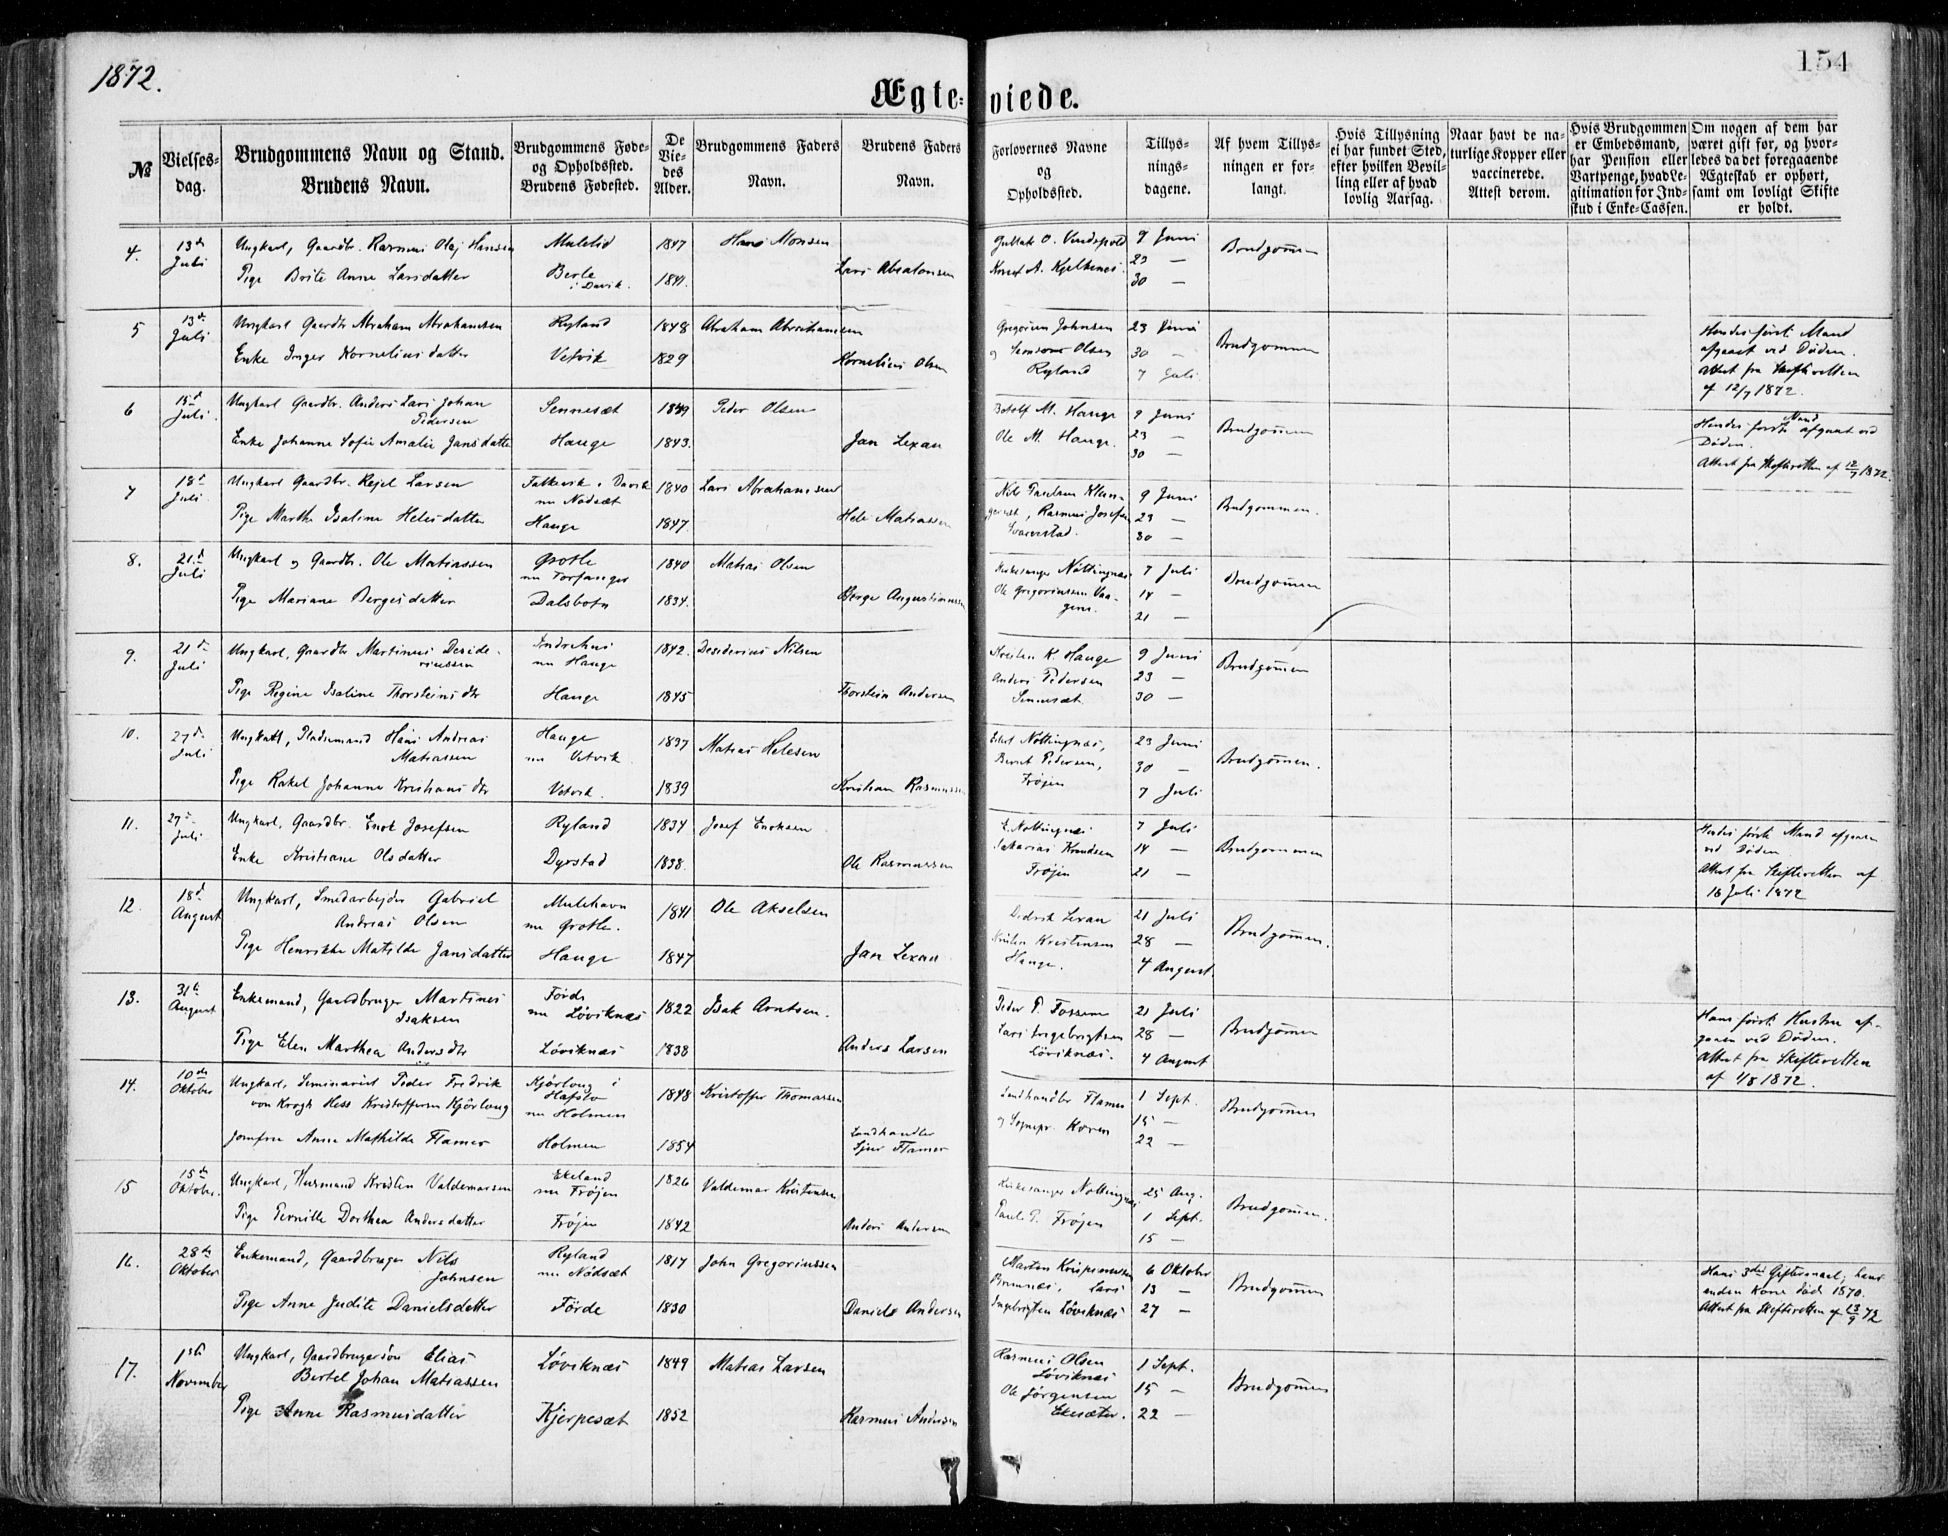 1872.
154
Ægte-
viede.
№
Vielses-
dag.
Brudgommens Navn og Stand.
Brudens Navn.
Brudgommens Føde-
og Opholdssted.
Brudens Fødested.
De
Vie-
des
Alder.
Brudgommens Faders
Navn.
Brudens Faders
Navn.
Forlovernes Navne
og
Opholdssted.
Tillys-
nings-
dagene.
Af hvem Tillys-
ningen er for-
langt.
Hvis Tillysning
ei har fundet Sted,
efter hvilken Bevil-
ling eller af hvad
lovlig Aarsag.
Naar havt de na-
turlige Kopper eller
vaccinerede.
Attest derom.
Hvis Brudgommen
er Embedsmand,
har Pension eller
Vartpenge, hvad Le-
gitimation for Ind-
skud i Enke-Cassen.
Om nogen af dem har
været gift før, og hvor-
ledes da det foregaaende
Ægteskab er ophørt,
samt om lovligt Skifte
er holdt.
4. 13de Juli
Ungkarl, Gaardbr. Rasmus Olaj Hansen
Mulelid 1847 Hans Monsen
Pige Brite Anne Larsdatter
Berle i Davik. 1841. Lars Absalonsen
Knut A. Kjelkenes.
9 Juni
23 —
30 —
Brudgommen
5 13de Juli
Ungkarl Gaardbr Abraham Abrahamsen
Ryland 1848 Abraham Abrahamsen
Enke Inger Korneliusdatter
Vetvik 1829 Kornelius Olsen
Gregorius Johnsen
og Olsen
Ryland
23 Juni
30 —
7 Juli
Brudgommen
Hendes første Mand
afgaaet ved Døden.
Attest fra Skifteretten
af 12/7 1872.
6 15d Juli
Ungkarl Gaardbr. Anders Lars Johan
Pedersen
Sennesæt 1849 Peder Olsen
Enke Johanne Sofie Amalie Jansdatter
Hauge 1843. Jan Lexau
Botolf M. Hauge
Ole M. Hauge.
9 Juni
23 —
30 —
Brudgommen
Hendes første Mand afgaaet ved
Døden.
Attest fra Skifteretten af 12/7 1872.
7 18d Juli
Ungkarl Gaardbr. Kejel Larsen
Falkevik i Davik
nu Nødsæt
1840 Lars Abrahamsen
Pige Marthe Isaline Helesdatter
Hauge 1847. Hele Matiassen
Rasmus Josefsen
9 Juni
23 —
30 —
Brudgommen.
8. 21d Juli
Ungkarl og Gaardbr. Ole Matiassen
Grotle
nu Torfanger
1840 Matias Olsen
Pige Mariane Bergesdatter
Dalsbotn 1834. Berge Augustinussen
Kirkesanger Nøttingnæs
Ole Gregoriussen Vaa-
gene.
7 Juli
14 —
21 —
Brudgommen
9. 21d Juli
Ungkarl, Gaardbr Martinus Deside-
riussen
Indrehus
nu Hauge
1842. Desiderius Nilsen
Pige Regine Isaline Thorsteinsdtr
Hauge 1845 Thorstein Andersen
Kristen K. Hauge
Anders Pedersen
Sennesæt.
9 Juni
23 —
30 —
Brudgommen
10. 27d Juli
Ungkarl, Pladsemand Hans Andreas
Matiassen
Hauge
nu Vetvik.
1837 Matias Helesen
Pige Rakel Johanne Kristiansdtr
Vetvik. 1839 Kristian Rasmussen
Nøttingnæs,
Bernt Pedersen,
Frøjen
23 Juni
30 —
7 Juli
Brudgommen.
11. 27d Juli
Ungkarl, Gaardbr. Enok Josefsen
Ryland 1834 Josef Enoksen
Enke Kristiane Olsdatter
Dyrstad 1838. Ole Rasmussen
E. Nøttingnæs
Sakarias Knudsen
Frøjen
7 Juli
14 —
21 —
Brudgommen
Hendes første Mand afgaaen
ved Døden.
Attest fra Skifteretten af
16 Juli 1872
12. 18d August
Ungkarl, Smedarbejder Gabriel
Andreas Olsen
Mulehavn
nu Grotle.
1841 Ole Akselsen
Pige Henrikke Matilde Jansdatter
Hauge 1847 Jan Lexau
Didrik Lexau
Kristen Kristensen
Hauge.
21 Juli
28 —
4 August
Brudgommen.
13. 31te August
Enkemand, Gaardbruger Martines
Isaksen
Førde
nu Løviknæs
1822 Isak Arntsen.
Pige Elen Marthea Andersdtr
Løviknæs 1838 Anders Larsen
Peder P. Fossen
Lars Ingebrigtsen
Løviknæs.
21 Juli
28 —
4 August
Brudgommen
Hans første Hustru af-
gaaen ved Døden.
Attest fra Skifteretten
af 1/8 1872.
14. 10de Oktober
Ungkarl, Seminarist Peder Fredrik
von Krogh Hess Kristoffersen Kjørlaug
Kjørlaug i
Hafslo
nu Holmen
1848 Kristoffer Thomassen
Jomfru Anne Mathilde Flamer
Holmen 1854 Landhandler
Sjur Flamer
Landhandler Flamer
og Sognepr. Koren
1 Sept.
15 —
22 —
Brudgommen
15 15de Oktober.
Ungkarl, Husmand Kristen Valdemarsen
Ekeland
nu Frøjen
1826 Valdemar Kristensen
Pige Pernille Dorthea Andersdatter
Frøjen 1842 Anders Andersen
Kirkesanger Nøttingnæs
Paul P. Frøjen
25 Aug.
1 Sept.
15 —
Brudgommen.
16. 28de Oktober
Enkemand, Gaardbruger Nils
Johnsen
Ryland
nu Nødsæt
1817 John Gregoriussen
Pige Anne Judite Danielsdatter
Førde 1830 Daniel Andersen
Morten Krispinussen
Bremnæs, Lars
Ingebrigtsen Løviknæs
6 Oktober
13 —
27 —
Brudgommen
Hans 3die Giftermaal; hans
anden Kone død 1870.
Attest fra Skifteretten af 13/9 72
17. 1ste November
Ungkarl, Gaardbrugersøn Elias
Bertel Johan Matiassen
Løviknæs 1849 Matias Larsen
Pige Anne Rasmusdatter
Kjerpesæt 1852 Rasmus Andersen
Rasmus Olsen
Løviknæs
Ole Jørgensen
Ekesæter.
1 Sept.
15 —
22 —
Brudgommen